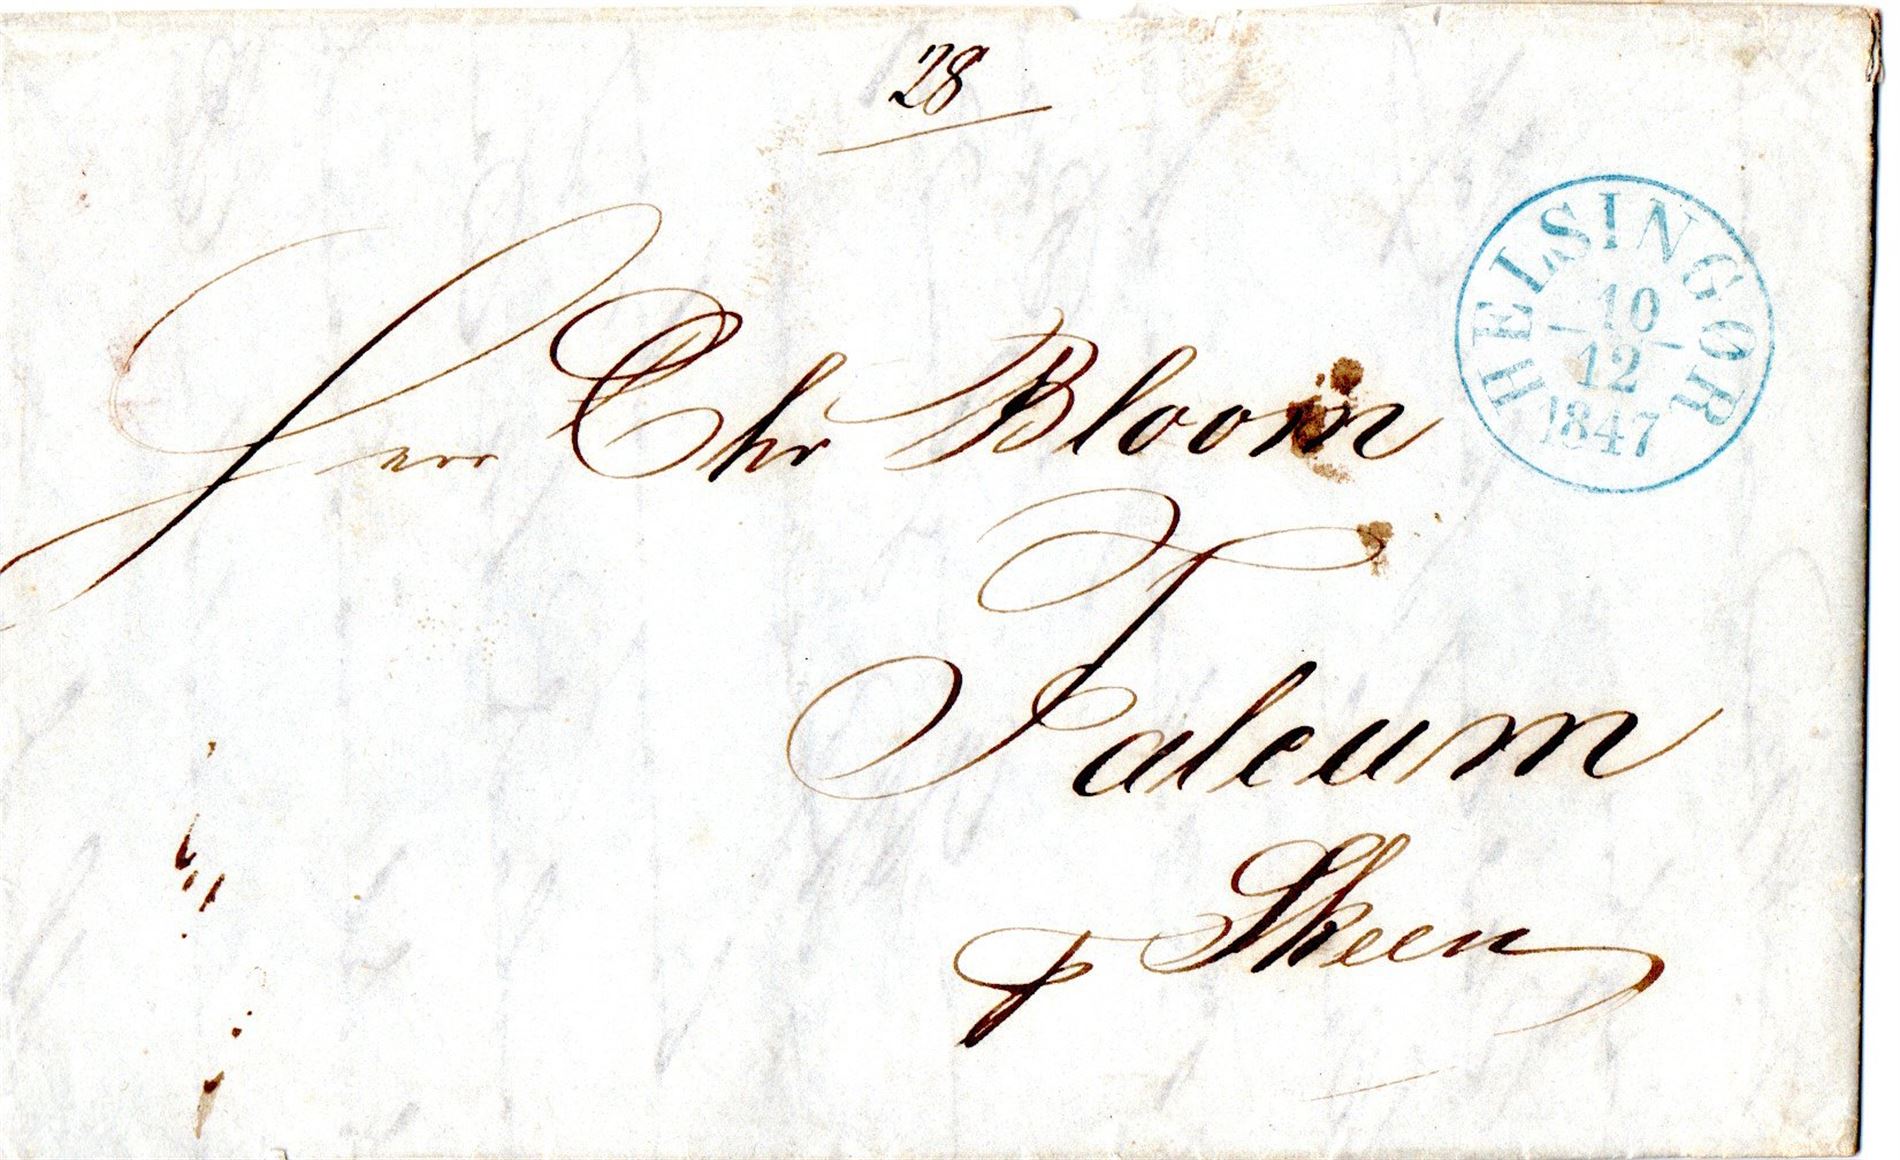 28
HELSINGØR
10
12
1847
Herr Chr Bloom
Falcum
p Skeen